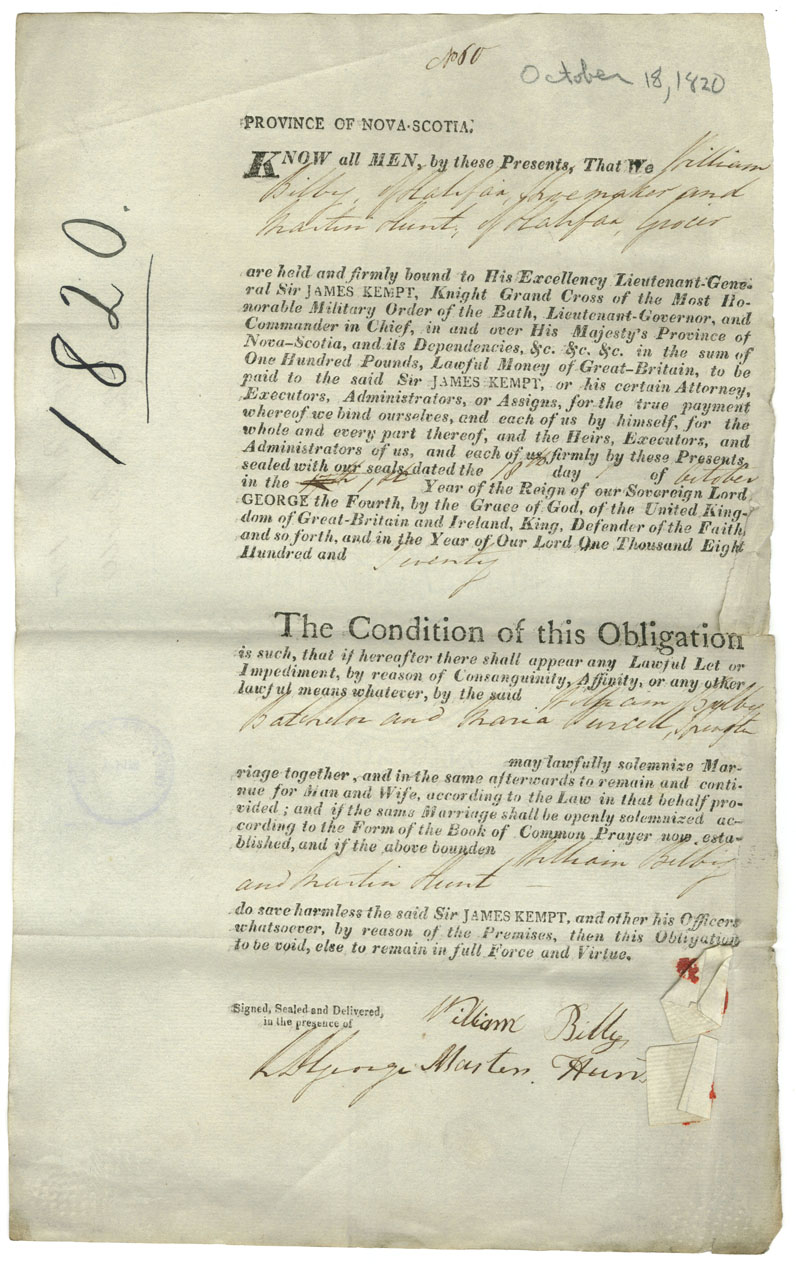 No 60
October 18, 1820
1820.
PROVINCE OF NOVA-SCOTIA.
KNOW all MEN, by these Presents, That We William
Bilby, of Halifax, Shoemaker and
Martin Hunt, of Halifax, Grocer
are held and firmly bound to His Excellency Lieutenant-Gene-
ral Sir JAMES KEMPT, Knight Grand Cross of the Most Ho-
norable Military Order of the Bath, Lieutenant-Governor, and
Commander in Chief, in and over His Majesty's Province of
Nova-Scotia, and its Dependencies, &c. &c. &c. in the sum of
One Hundred Pounds, Lawful Money of Great-Britain, to be
paid to the said Sir JAMES KEMPT, or his certain Attorney,
Executors, Administrators, or Assigns, for the true payment
whereof we bind ourselves, and each of us by himself, for the
whole and every part thereof, and the Heirs, Executors, and
Administrators of us, and each of us firmly by these Presents,
sealed with our seals, dated the 18th day of October
in the 1st Year of the Reign of our Sovereign Lord
GEORGE the Fourth, by the Grace of God, of the United King-
dom of Great-Britain and Ireland, King, Defender of the Faith,
and so forth, and in the Year of Our Lord One Thousand Eight
Hundred and Twenty
The Condition of this Obligation
is such, that if hereafter there shall appear any Lawful Let or
Impediment, by reason of Consanguinity, Affinity, or any other
lawful means whatever, by the said William Bilby
Batchelor and Maria Purcell, Spinster
may lawfully solemnize Mar-
riage together, and in the same afterwards to remain and conti-
nue for Man and Wife, according to the Law in that behalf pro-
vided; and if the same Marriage shall be openly solemnized ac-
cording to the Form of the Book of Common Prayer now esta-
blished, and if the above bounden William Bilby
and Martin Hunt —
do save harmless the said Sir JAMES KEMPT, and other his Officers
whatsoever, by reason of the Premises, then this Obligation
to be void, else to remain in full Force and Virtue.
Signed, Sealed and Delivered,
in the presence of
William Bilby
George Marten Hunt